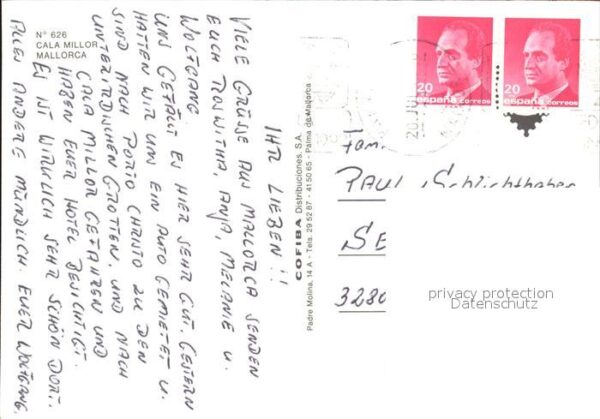 Nº 626
CALA MILLOR
MALLORCA
IHR LIEBEN!!
VIELE GRÜSSE AUS MALLORCA SENDEN
EUCH ROSWITHA, ANJA, MELANIE U.
WOLFGANG.
UNS GEFÄLLT ES HIER SEHR GUT. GESTERN
HATTEN WIR UNS EIN AUTO GEMIETET U.
SIND NACH PORTO CHRISTO ZU DEN
UNTERIRDISCHEN GROTTEN, UND NACH
CALA MILLOR GEFAHREN UND
HABEN EUER HOTEL BESICHTIGT.
ES IST WIRKLICH SEHR SCHÖN DORT.
ALLES ANDERE MÜNDLICH. EUER WOLFGANG.
COFIBA Distribuciones, S.A.
Padre Molina, 14 A - Tels. 29 52 87 - 41 50 65 - Palma de Mallorca
20
españa correos
20
españa correos
20 JUN
Fam.
PAUL Schlichthaber
SE
3280
privacy protection
Datenschutz